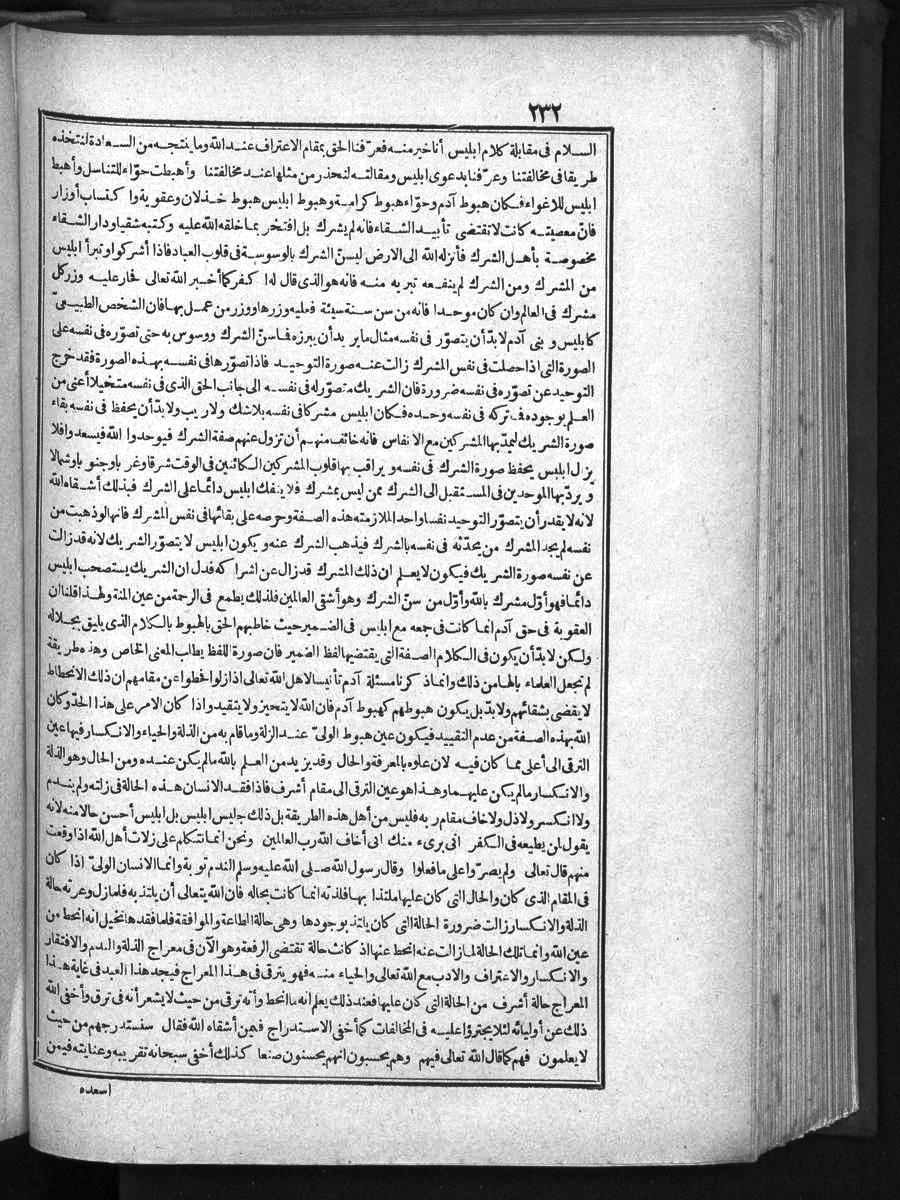 ٢٣٢
السلام فى مقابلة كلام ابليس أنا خير منه فعرّفنا الحق بمقام الاعتراف عند الله وما ينتجه من السعادة لنتخذه
طريقا فى مخالفتنا وعرّفنا بدعوى ابليس ومقالته لنحذر من مثلها عند مخالفتنا وأهبطت حوّاء للتناسل وأهبط
ابليس للاغواء فكان هبوط آدم وحوّاء هبوط كرامة وهبوط ابليس هبوط خذلان وعقوبة واكتساب أوزار
فانّ معصيته كانت لا تقتضى تأبيد الشقاء فانه لم يشرك بل افتخر بما خلقه الله عليه وكتبه شقيا ودار الشقاء
مخصوصة بأهل الشرك فأنزله الله الى الارض ليسنّ الشرك بالوسوسة فى قلوب العباد فاذا أشركوا وتبرأ ابليس
من المشرك ومن الشرك لم ينفعه تبريه منه فانه هو الذى قال له اكفر كما أخبر الله تعالى فحار عليه وزر كل
مشرك فى العالم وان كان موحدا فانه من سن سنة سيئة فعليه وزرها ووزر من عمل بها فان الشخص الطبيعىّ
كابليس وبنى آدم لا بدّ أن يتصوّر فى نفسه مثال ما يريد أن يبرزه فما سنّ الشرك ووسوس به حتى تصوّره فى نفسه على
الصورة التى اذا حصلت فى نفس المشرك زالت عنه صورة التوحيد فاذا تصوّرها فى نفسه بهذه الصورة فقد خرج
التوحيد عن تصوّره فى نفسه ضرورة فان الشريك متصوّر له فى نفسه الى جانب الحق الذى فى نفسه متخيلا أعنى من
العلم بوجوده فما تركه فى نفسه وحده فكان ابليس مشركا فى نفسه بلا شك ولا ريب ولا بدّ أن يحفظ فى نفسه بقاء
صورة الشريك ليمدّ بها المشركين مع الانفاس فانه خائف منهم أن تزول عنهم صفة الشرك فيوحدوا الله فيسعدوا فلا
يزال ابليس يحفظ صورة الشرك فى نفسه ويراقب بها قلوب المشركين الكائنين فى الوقت شرقا وغربا وجنوبا وشمالا
ويردّ بها الموحدين فى المستقبل الى الشرك ممن ليس بمشرك فلا ينفك ابليس دائما على الشرك فبذلك أشقاه الله
لانه لا يقدر أن يتصوّر التوحيد نفسا واحدا لملازمته هذه الصفة وحرصه على بقائها فى نفس المشرك فانها لو ذهبت من
نفسه لم يجد المشرك من يحدّثه فى نفسه بالشرك فيذهب الشرك عنه ويكون ابليس لا يتصوّر الشريك لانه قد زالت
عن نفسه صورة الشريك فيكون لا يعلم ان ذلك المشرك قد زال عن اشراكه فدل ان الشريك يستصحب ابليس
دائما فهو أوّل مشرك بالله وأوّل من سنّ الشرك وهو أشقى العالمين فلذلك يطمع فى الرحمة من عين المنة ولهذا قلنا ان
العقوبة فى حق آدم انما كانت فى جمعه مع ابليس فى الضمير حيث خاطبهم الحق بالهبوط بالكلام الذى يليق بجلاله
ولكن لا بدّ أن يكون فى الكلام الصفة التى يقتضيها لفظ الضمير فان صورة اللفظ يطلب المعنى الخاص وهذه طريقة
لم تجعل العلماء بالها من ذلك وانما ذكرنا مسئلة آدم تأنيسا لاهل الله تعالى اذا زلوا فحطوا عن مقامهم ان ذلك الانحطاط
لا يقضى بشقائهم ولا بدّ بل يكون هبوطهم كهبوط آدم فان الله لا يتحيز ولا يتقيد واذا كان الامر على هذا الحدّ وكان
الله بهذه الصفة من عدم التقييد فيكون عين هبوط الولىّ عند الزلة وما قام به من الذلة والحياء والانكسار فيها عين
الترقى الى أعلى مما كان فيه لان علوّه بالمعرفة والحال وقد يزيد من العلم بالله ما لم يكن عنده ومن الحال وهو الذلة
والانكسار ما لم يكن عليهما وهذا هو عين الترقى الى مقام أشرف فاذا فقد الانسان هذه الحالة فى زلته ولم يندم
ولا انكسر ولا ذل ولا خاف مقام ربه فليس من أهل هذه الطريقة بل ذلك جليس ابليس بل ابليس أحسن حالا منه لانه
يقول لمن يطيعه فى الكفر انى برىء منك انى أخاف الله رب العالمين ونحن انما نتكلم على زلات أهل الله اذا وقعت
منهم قال تعالى ولم يصرّوا على ما فعلوا وقال رسول الله صلى الله عليه وسلم الندم توبة وانما الانسان الولىّ اذا كان
فى المقام الذى كان والحال التى كان عليها ملتذا بها فلذته انما كانت بحاله فان الله يتعالى أن يلتذ به فلما زل وعرته حالة
الذلة والانكسار زالت ضرورة الحالة التى كان يلتذ بوجودها وهى حالة الطاعة والموافقة فلما فقدها تخيل انه انحط من
عين الله وانما تلك الحالة لما زالت عنه انحط عنها اذ كانت حالة تقتضى الرفعة وهو الآن فى معراج الذلة والندم والافتقار
والانكسار والاعتراف والادب مع الله تعالى والحياء منه فهو يترقى فى هذا المعراج فيجد هذا العبد فى غاية هذا
المعراج حالة أشرف من الحالة التى كان عليها فعند ذلك يعلم انه ما انحط وأنه ترقى من حيث لا يشعر أنه فى ترق وأخفى الله
ذلك عن أوليائه لئلا يجترؤا عليه فى المخالفات كما أخفى الاستدراج فيمن أشقاه الله فقال سنستدرجهم من حيث
لا يعلمون فهم كما قال الله تعالى فيهم وهم يحسبون انهم يحسنون صنعا كذلك أخفى سبحانه تقريبه وعنايته فيمن
أسعده